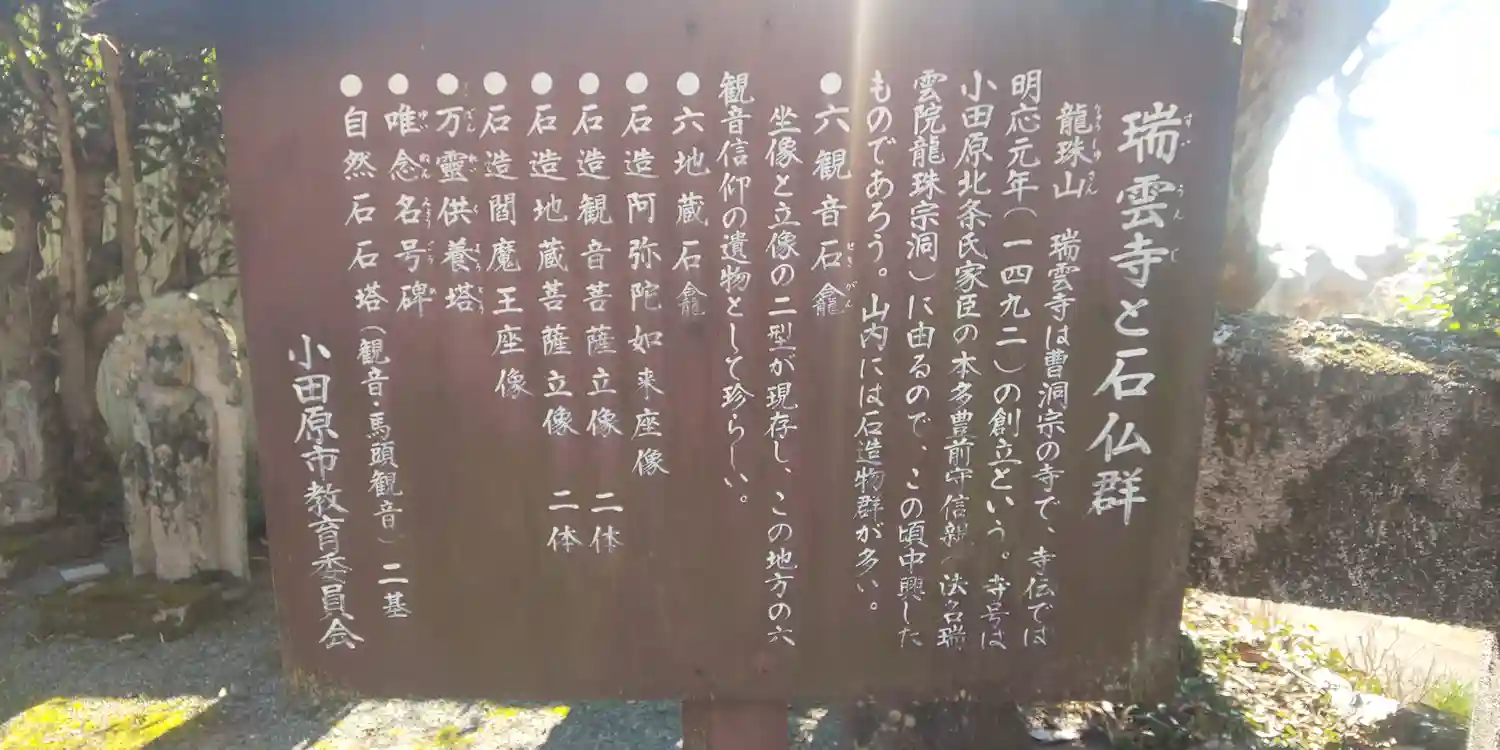 瑞雲寺と石仏群
龍珠山 瑞雲寺は曹洞宗の寺で、寺伝では
明応元年(一四九二)の創立という。寺号は
小田原北条氏家臣の本多豊前守信親(法名瑞
雲院龍珠宗洞)に由るので、この頃中興した
ものであろう。山内には石造物群が多い。
●六観音石龕
坐像と立像の二型が現存し、この地方の六
観音信仰の遺物として珍らしい。
●六地蔵石龕
●石造阿弥陀如来座像
●石造観音菩薩立像 二体
●石造地蔵菩薩立像 二体
●石造閻魔王座像
●万霊供養塔
●唯念名号碑
●自然石石塔(観音・馬頭観音) 二基
小田原市教育委員会